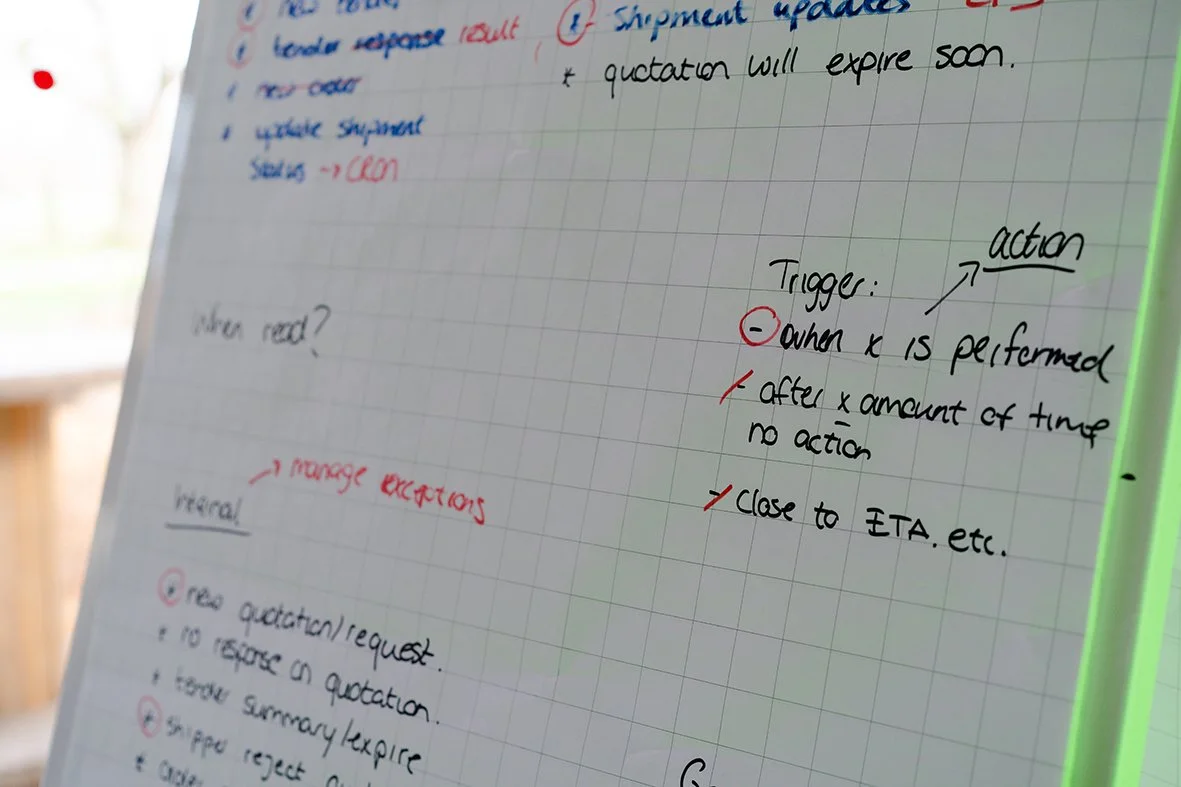 * new tender
* tender response result
* new order
* update shipment
status → CRON
* Shipment updates
* quotation will expire soon.
When read?
action
Trigger:
- when x is performed
- after x amount of time
no action
- Close to ETA. etc.
Internal
→ manage exceptions
* new quotation/request.
* no response on quotation.
* tender summary/expire
* shipper reject
* order